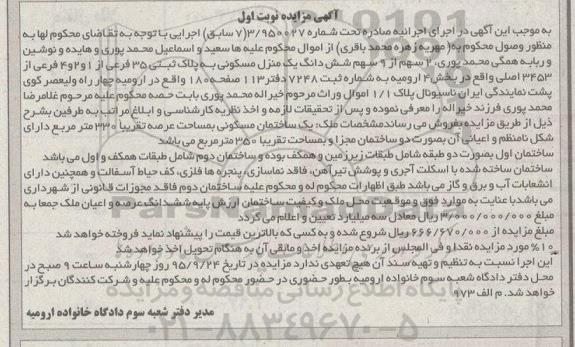 آگهی مزایده نوبت اول
به موجب این آگهی در اجرای اجرائیه صادره تحت شماره ۳/۹۵۰۰۲۷(۷ سابق) اجرایی با توجه به تقاضای محکوم لها به
منظور وصول محکوم به( مهریه زهره محمد باقری) از اموال محکوم علیه ها سعید و اسماعیل محمد پوری و هایده و نوشین
و ربابه همگی محمد پوری، ۲ سهم از ۹ سهم شش دانگ یک منزل مسکونی به پلاک ثبتی ۳۵ فرعی از ۱و۲و۴ فرعی از
۳۴۵۳ اصلی واقع در بخش ۴ ارومیه به شماره ثبت ۷۲۴۸ دفتر ۱۱۳ صفحه ۱۸۰ واقع در ارومیه چهار راه ولیعصر کوی
پشت نمایندگی ایران ناسیونال پلاک ۱/۱ اموال وراث مرحوم خیر اله محمد پوری بابت حصه محکوم علیه مرحوم غلامرضا
محمد پوری فرزند خیر اله را معرفی نموده و پس از تحقیقات لازمه و اخذ نظریه کارشناسی و ابلاغ مراتب به طرفین بشرح
ذیل از طریق مزایده بفروش می رساند مشخصات ملک: یک ساختمان مسکونی بمساحت عرصه تقریبا ۳۳۰ متر مربع دارای
شکل نامنظم و اعیانی آن بصورت دو ساختمان مجزا و بمساحت تقریبا ۳۵۰ مترمربع می باشد
ساختمان اول بصورت دو طبقه شامل طبقات زیرزمین و همکف بوده و ساختمان دوم شامل طبقات همکف و اول می باشد
ساختمان ساخته شده با اسکلت آجری و پوشش تیرآهن، فاقد نماسازی، پنجره ها فلزی، کف حیاط آسفالت و همچنین دارای
انشعابات آب و برق و گاز می باشد طبق اظهارات محکوم له و محکوم علیه ساختمان دوم فاقد مجوزات قانونی از شهرداری
می باشد با عنایت به موارد فوق و موقعیت محل ملک و کیفیت ساختمان ارزش پایه ششدانگ عرصه و اعیان ملک جمعا به
مبلغ ۳/۰۰۰/۰۰۰/۰۰۰ ریال معادل سه میلیارد تعیین و اعلام می گردد
مبلغ مزایده از ۶۶۶/۶۷۰/۰۰۰ ریال شروع شده و به کسی که بالاترین قیمت را پیشنهاد نماید فروخته خواهد شد
۱۰٪ مورد مزایده نقدا و فی المجلس از برنده مزایده اخذ و مابقی آن به هنگام تحویل اخذ خواهد شد
این اجرا نسبت به تنظیم و تهیه سند آن هیچ تعهدی ندارد مزایده در تاریخ ۹۵/۹/۲۴ روز چهارشنبه ساعت ۹ صبح در
محل دفتر دادگاه شعبه سوم خانواده ارومیه بطور حضوری در حضور محکوم له و محکوم علیه و شرکت کنندگان برگزار
خواهد شد. م الف ۹۷۳
مدیر دفتر شعبه سوم دادگاه خانواده ارومیه
پایگاه اطلاع رسانی مناقصه و مزایده
۰۲۱-۸۸۳۴۹۶۷۰-۵